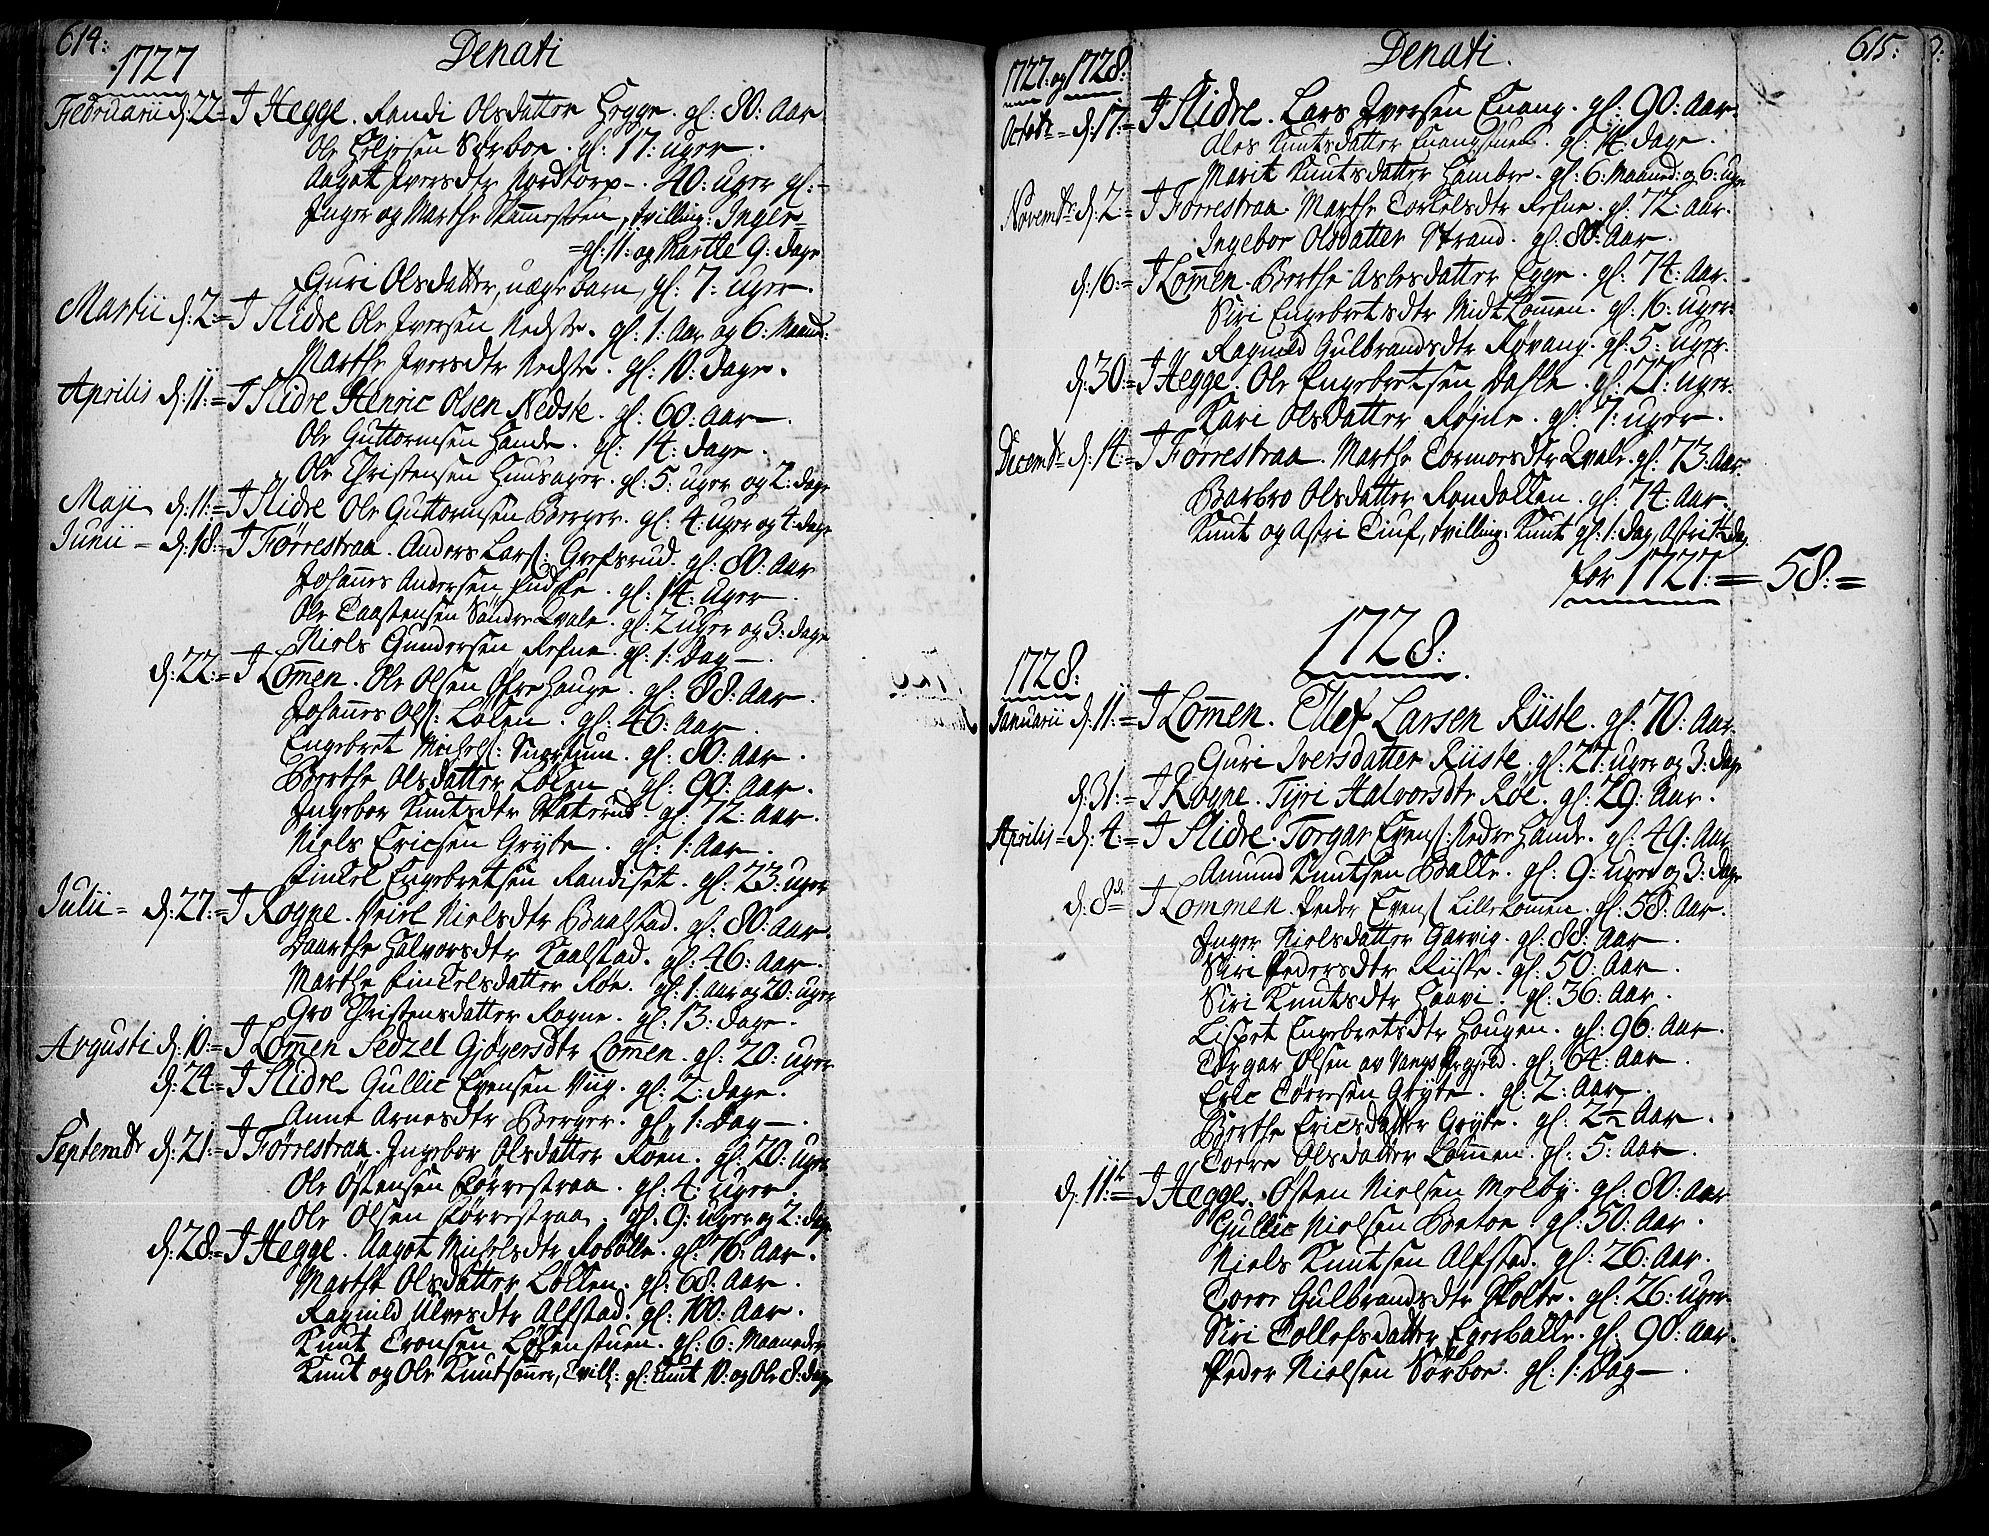 614:
1727
Denati
Februarii d: 22 = J Hegge. Randi Olsdatter Hegge. gl: 80: Aar
Ole Helgesen Sørboe. gl: 17: uger.
Aagot Iversdtr Nordtorp. 40: uger gl:
Inger og Marthe, tvilling: Inger =
= gl: 11: og Marthe 9: dage
Guri Olsdatter, uægte barn, gl: 7: uger.
Martii d: 2: = J Slidre Ole Iversen Nedste. gl: 1: Aar og 6: Maaned:
Marthe Iversdtr Nedste. gl: 10: dage.
Aprilis d: 11: = J Slidre Henric Olsen Nedste. gl: 60: Aar
Ole Guttormsen Hande. gl: 14: dage.
Ole Christensen Huusager. gl: 5: uger og 2: dage
Maji d: 11: = J Slidre Ole Guttormsen Berger. gl: 4: uger og 4: dage
Junii = d: 18: = J Førrestraa. Anders Lars: Grefsrud. gl: 80: Aar
Johannes Andersen. gl: 14: uger.
Ole Taastensen Søndre Qvale. gl: 2 uger og 3: dage
Niels Gundersen Refne. gl: 1: dag.
d: 22: = J Lomen. Ole Olsen Øfre Hauge. gl: 88: Aar
Johannes Ols: Lølen. gl: 46: Aar.
Engebret Michels: Snortum. gl: 80: Aar.
Berthe Olsdatter Lølen. gl: 90: Aar.
Ingebor Knutsdtr Skaterud. gl: 72: Aar.
Niels Ericsen Gryte. gl: 1: Aar.
Finkel Engebretsen Randiset. gl: 23: uger
Julii = d: 27: = J Rogne. Nielsdtr Baalstad. gl: 80: Aar.
Halvorsdtr Kaalstad. gl: 46: Aar.
Marthe Finkelsdatter Røe. gl: 1: Aar og 20: uger
Gro Christensdatter Rogne. gl: 13: dage.
Augusti d: 10: = J Lomen Sedzel Gjøgersdtr Lomen. gl: 20: uger
d: 24: = J Slidre Gullic Evensen Viig. gl: 2: dage.
Anne Arnesdtr Berger. gl: 1: Dag.
Septembr d: 21: = J Førrestraa. Ingebor Olsdatter Røen. gl: 20: uger
Ole Østensen Førrestraa. gl: 4: uger.
Ole Olsen Førrestraa. gl: 9: uger og 2: dage
d: 28: = J Hegge. Aagot Michelsdtr Robølle. gl: 76: Aar.
Marthe Olsdatter Løkken. gl: 68: Aar.
Ragnild Ulvesdtr Alfstad. gl: 100: Aar.
Knut Tronsen Løkenstuen. gl: 6: Maaneder
Knut og Ole Knutsønner, tvill: gl: Knut 10: og Ole 8: dage
1727: og 1728:
Denati.
615:
Octobr = d: 17: = J Slidre. Lars Iversen Euang. gl: 90: Aar.
Ales Knutsdatter. gl: 14 dage.
Marit Knutsdatter Hambre. gl: 6: Maaned: og 6: uger
Novembr d: 2: = J Førrestraa. Marthe Torkelsdtr Refne. gl: 72: Aar.
Ingebor Olsdatter Strand. gl: 80: Aar.
d: 16: = J Lomen. Berthe Aslesdatter Egge. gl: 74: Aar.
Siri Engebretsdtr Midt Lomen. gl: 16: uger.
Ragnild Gulbrandsdtr Røvang. gl: 5: uger.
d: 30: = J Hegge. Ole Engebretsen Dahle. gl: 27: uger.
Kari Olsdatter Røjne. gl: 7: uger.
Decembr d: 14: = J Førrestraa. Marthe Tormorsdtr Qvale. gl: 73: Aar.
Barbro Olsdatter Rendallen. gl: 74: Aar.
Knut og Astri, tvilling: Knut gl: 1: dag, Astri
for 1727: = 58: =
1728:
1728:
Januarii d: 11: = J Lomen. Ellef Larsen Riiste. gl: 70: Aar.
Guri Iversdatter Riiste. gl: 27: uger og 3: dage
d: 31: = J Rogne. Tyri Halvorsdtr Røe. gl: 29: Aar.
Aprilis = d: 4: = J Slidre. Torgar Evens: Nedre Hande. gl: 49: Aar
Amund Knutsen Balle. gl: 9: uger og 3: dage
d: 8 = J Lommen. Peder Evens: Lille Lomen. gl: 58: Aar.
Inger Nielsdatter Garvig. gl: 88: Aar.
Siri Pedersdtr Riiste. gl: 50: Aar.
Siri Knutsdtr Haavi. gl: 36: Aar.
Lispet Engebretsdtr Haugen. gl: 96: Aar.
Torgar Olsen av Vangs. gl: 64: Aar.
Eric Tørresen Gryte. gl: 2: Aar.
Berthe Ericsdatter Gryte. gl: 2½ Aar.
Torre Olsdatter Lommen. gl: 5: Aar.
d: 11: = J Hegge. Østen Nielsen Melby. gl: 80: Aar
Gullic Nielsen Betoe. gl: 50: Aar.
Niels Knutsen Alfstad. gl: 26: Aar.
Torre Gulbrandsdtr Skolte. gl: 26: uger.
Siri Tollefsdatter Egerballe. gl: 90: Aar.
Peder Nielsen Sørboe. gl: 1: Dag.